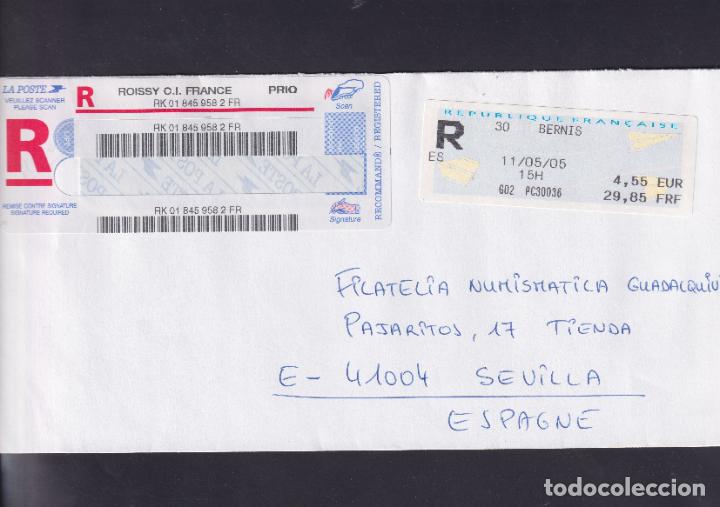 LA POSTE
VEUILLEZ SCANNER
PLEASE SCAN
R
ROISSY C.I. FRANCE
PRIO
RK 01 845 958 2 FR
Scan
R
RK 01 845 958 2 FR
RECOMMANDÉ / REGISTERED
REMISE CONTRE SIGNATURE
SIGNATURE REQUIRED
RK 01 845 958 2 FR
Signature
REPUBLIQUE FRANÇAISE
R
30 BERNIS
ES
11/05/05
15H
4,55 EUR
G02 PC30036
29,85 FRF
FILATELIA NUMISMATICA GUADALQUIVI
PAJARITOS, 17 TIENDA
E- 41004 SEVILLA
ESPAGNE
todocoleccion.net